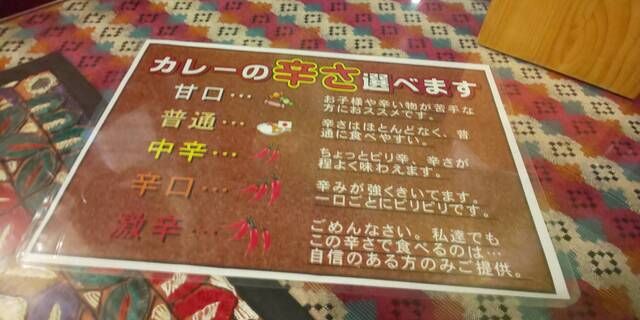 カレーの辛さ選べます
甘口…
お子様や辛い物が苦手な
方におススメです。
普通…
辛さはほとんどなく、普
通に食べやすい。
中辛…
ちょっとピリ辛、辛さが
程よく味わえます。
辛口…
辛みが強くきいてます。
一口ごとにピリピリです。
激辛…
ごめんなさい。私達でも
この辛さで食べるのは…
自信のある方のみご提供。